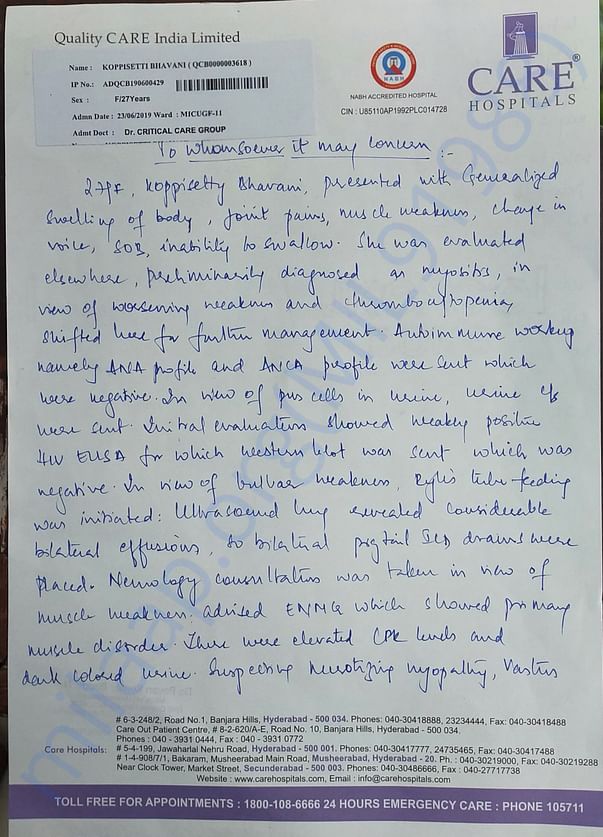 Quality CARE India Limited
Name : KOPPISETTI BHAVANI ( QCB0000003618 )
IP No.: ADQCB190600429
Sex : F/27Years
Admn Date : 23/06/2019 Ward : MICUGF-11
Admt Doct : Dr. CRITICAL CARE GROUP
NABH
NABH ACCREDITED HOSPITAL
CIN : U85110AP1992PLC014728
CARE®
HOSPITALS
To whomsoever it may concern :-
27yF, Koppisetty Bhavani, presented with Generalized
swelling of body, joint pains, muscle weakness, change in
voice, SOB, inability to swallow. She was evaluated
elsewhere, preliminarily diagnosed as myositis, in
view of worsening weakness and thrombocytopenia,
shifted here for further management. Autoimmune workup
namely ANA profile and ANCA profile were sent which
were negative. In view of pus cells in urine, urine c/s
were sent. Initial evaluation showed weakly positive
HIV ELISA for which western blot was sent which was
negative. In view of bulbar weakness, Ryle's tube feeding
was initiated. Ultrasound lung revealed considerable
bilateral effusions, so bilateral pigtail ICD drains were
placed. Neurology consultation was taken in view of
muscle weakness. advised ENMG which showed primary
muscle disorder. There were elevated CPK levels and
dark colored urine. Suspecting necrotizing myopathy, Vastus
milaap.org
# 6-3-248/2, Road No.1, Banjara Hills, Hyderabad - 500 034. Phones: 040-30418888, 23234444, Fax: 040-30418488
Care Out Patient Centre, # 8-2-620/A-E, Road No. 10, Banjara Hills, Hyderabad - 500 034.
Phone : 040 - 3931 0444, Fax : 040 - 3931 0772
Core Hospitals: # 5-4-199, Jawaharlal Nehru Road, Hyderabad - 500 001. Phones: 040-30417777, 24735465, Fax: 040-30417488
# 1-4-908/7/1, Bakaram, Musheerabad Main Road, Musheerabad, Hyderabad - 20. Ph. : 040-30219000, Fax: 040-30219288
Near Clock Tower, Market Street, Secunderabad - 500 003. Phones: 040-30486666, Fax : 040-27717738
Website : www.carehospitals.com, Email : info@carehospitals.com
TOLL FREE FOR APPOINTMENTS : 1800-108-6666 24 HOURS EMERGENCY CARE : PHONE 105711